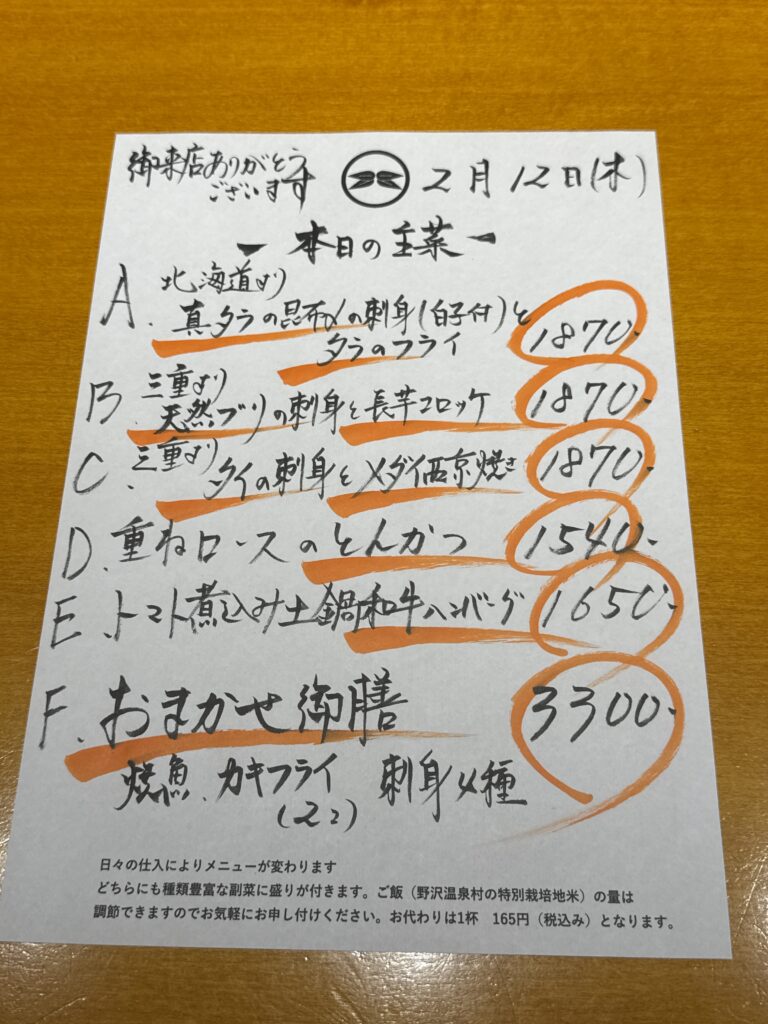 御来店ありがとう
ございます
2月12日(木)
ー 本日の主菜 ー
A. 北海道より
真タラの昆布〆の刺身(白子付)と
タラのフライ
1870-
B. 三重より
天然ブリの刺身と長芋コロッケ
1870-
C. 三重より
タイの刺身とメダイ西京焼き
1870-
D. 重ねロースのとんかつ
1540-
E. トマト煮込み土鍋和牛ハンバーグ
1650-
F. おまかせ御膳
3300-
焼魚、カキフライ 刺身4種
(2コ)
日々の仕入によりメニューが変わります
どちらにも種類豊富な副菜に盛りが付きます。ご飯(野沢温泉村の特別栽培地米)の量は
調節できますのでお気軽にお申し付けください。お代わりは1杯 165円(税込み)となります。